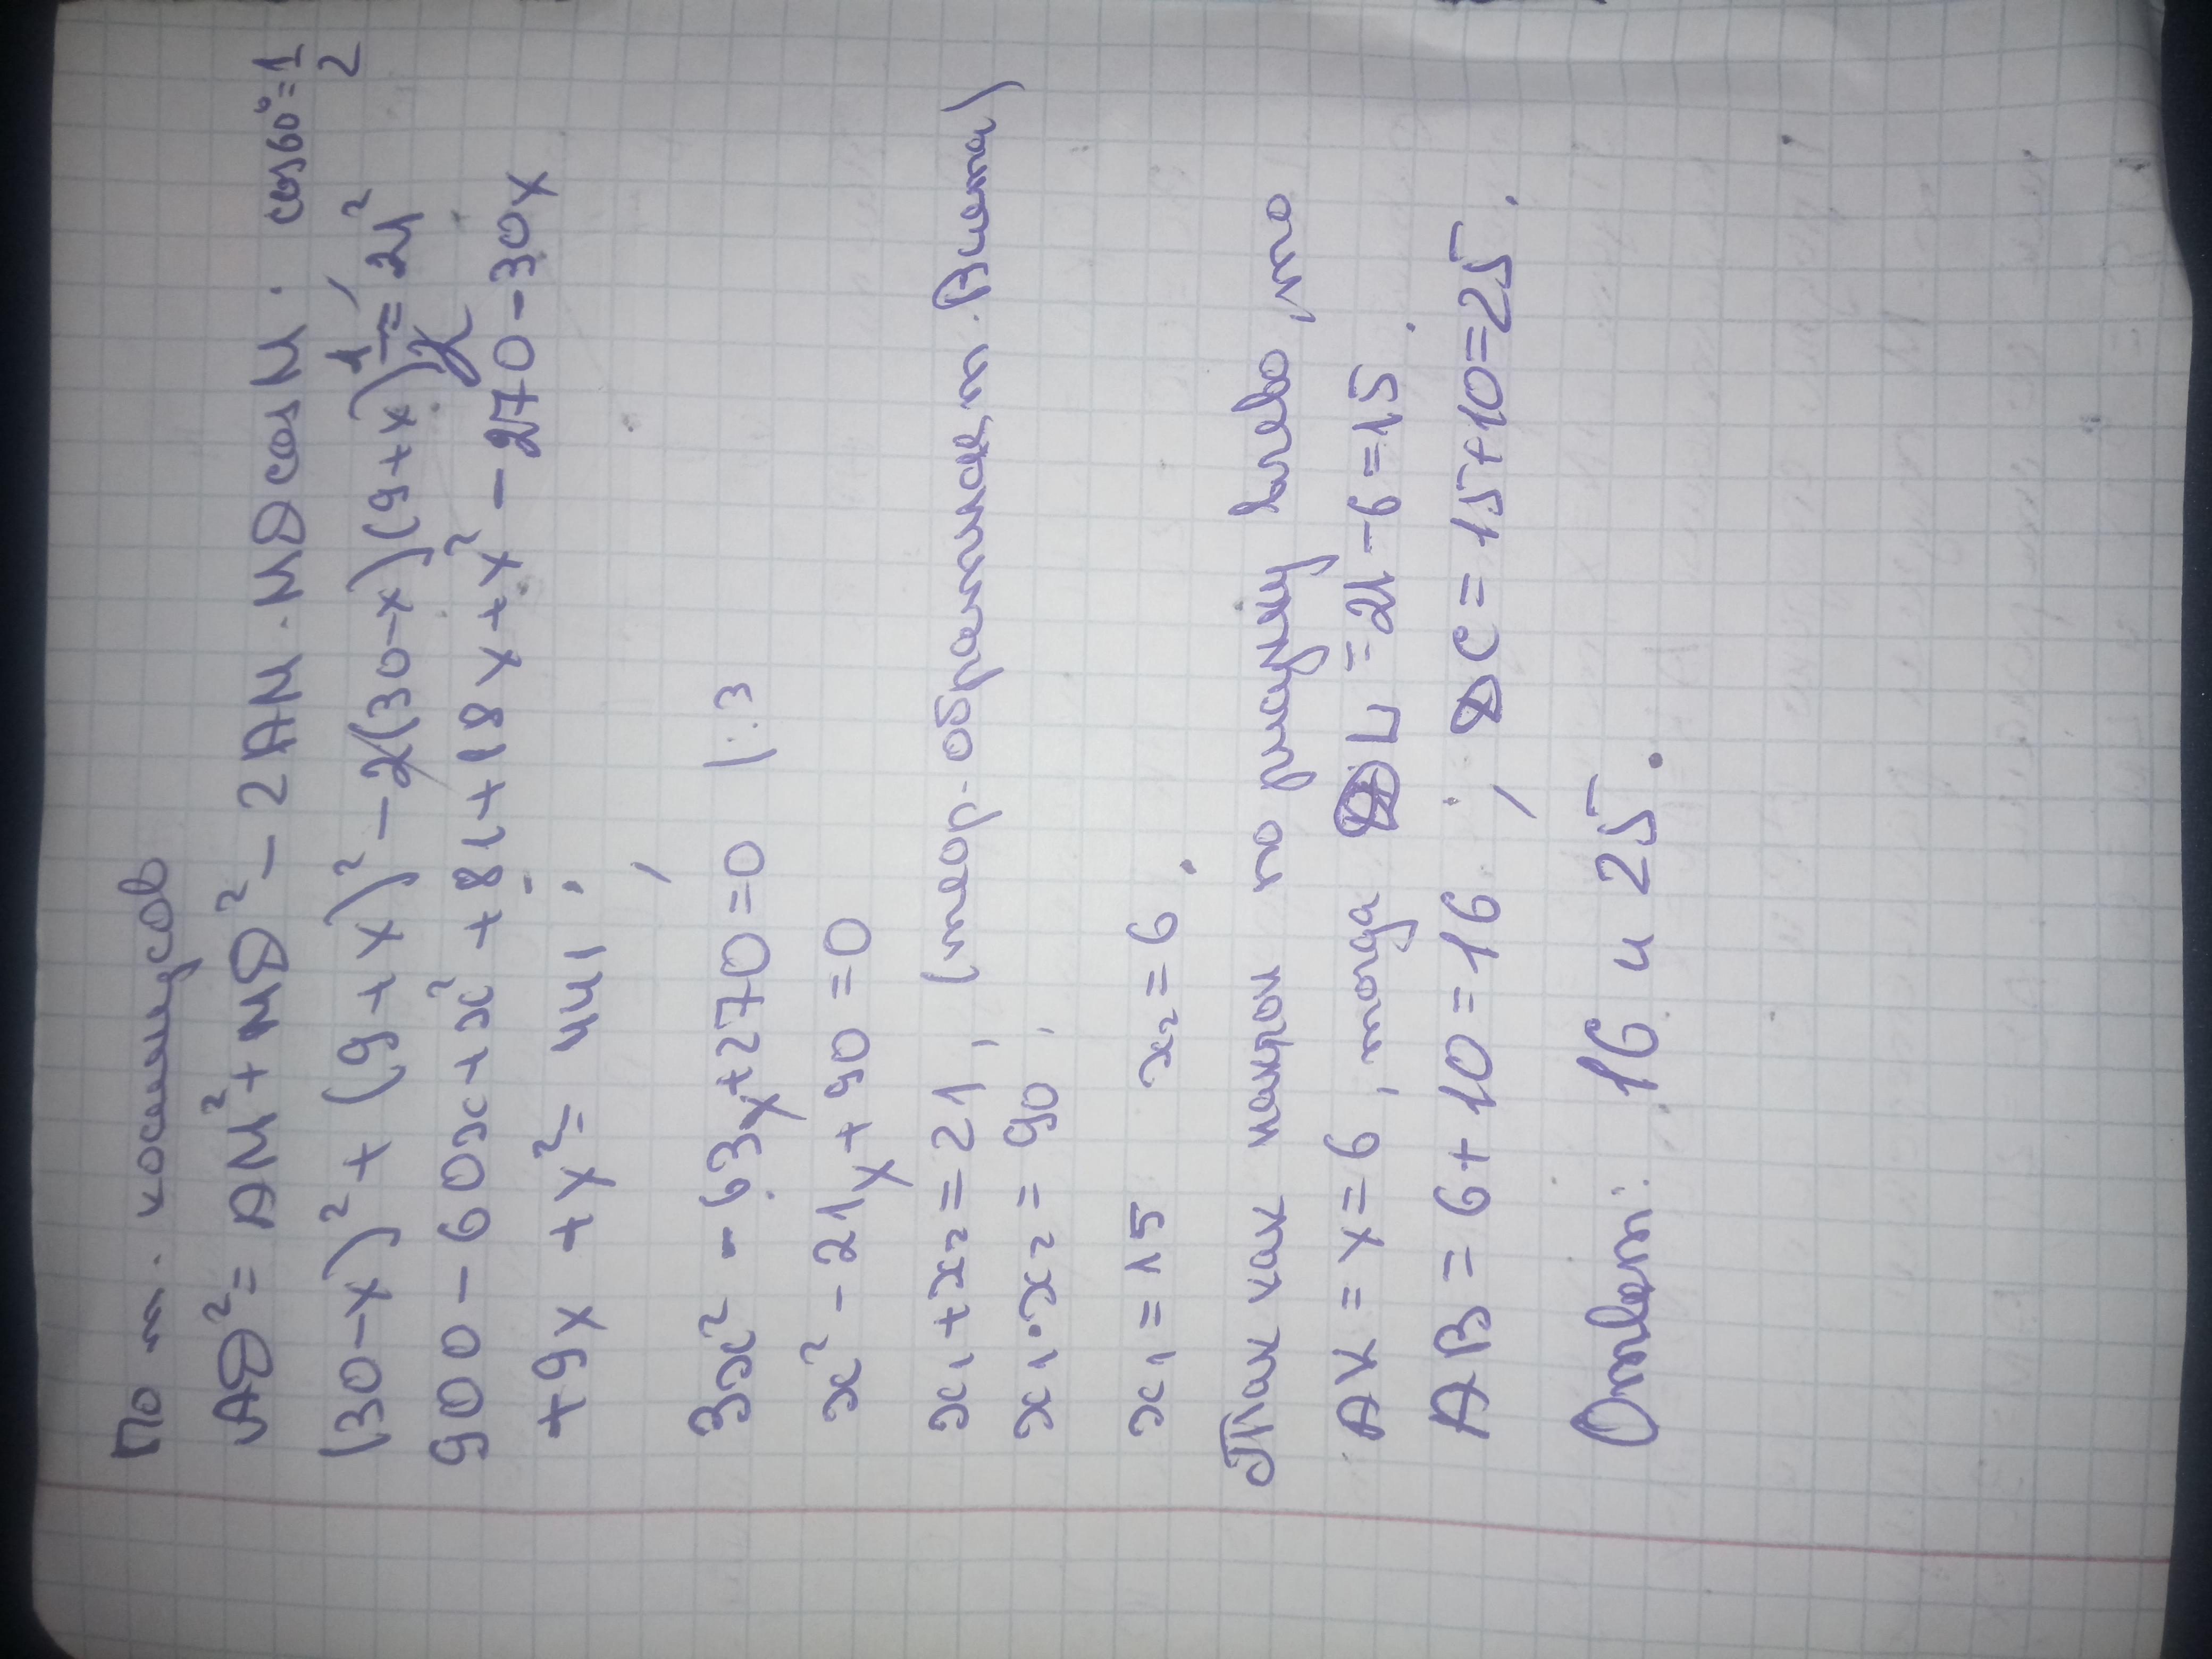 По т. косинусов
AD² = AM² + MD² - 2AM · MD cos M . cos 60° = 1/2
(30-x)² + (9+x)² - 2(30-x)(9+x) 1/2 = 21²
900 - 60x + x² + 81 + 18x + x² - 270 - 30x
+9x + x² = 441 ;
3x² - 63x + 270 = 0 |:3
x² - 21x + 90 = 0
x₁ + x₂ = 21 , (теор. обратная т. Виета)
x₁ · x₂ = 90 ,
x₁ = 15 x₂ = 6 .
Так как по рисунку , то
AK = x = 6 , тогда DL = 21 - 6 = 15 .
AB = 6 + 10 = 16 ; DC = 15 + 10 = 25 .
Ответ: 16 и 25 .